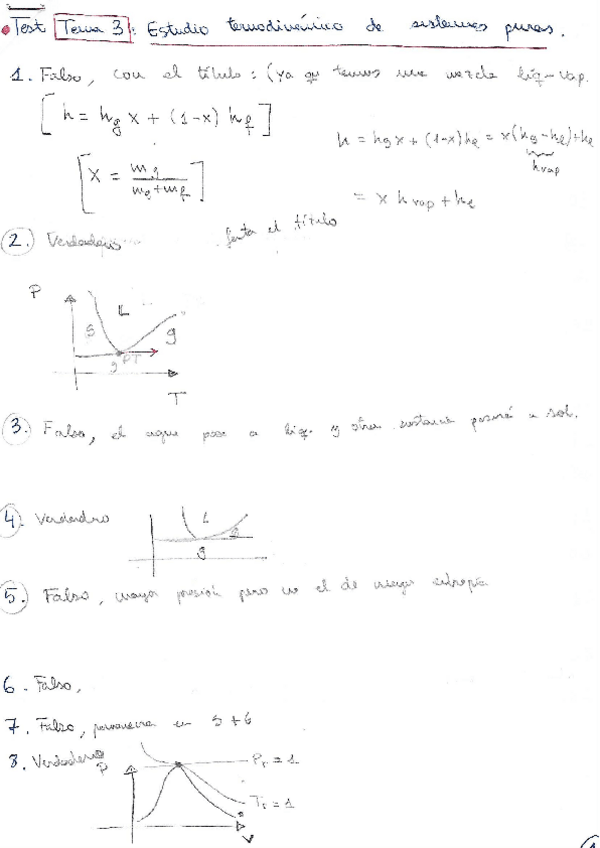 • Test Tema 3: Estudio termodinámico de sistemas puros.
1. Falso, con el título: (ya que tenemos una mezcla líq-vap.
[h = hg x + (1-x) hf]
h = hg x + (1-x) hl = x(hg - hl) + hl
hvap
[x = mg / mg + mf]
= x hvap + hl
2. Verdadero falta el título
P
L
S g
PT
g
T
3. Falso, el agua pasa a líq. y otra sustancia pasará a sol.
4. Verdadero
L
g
5. Falso, mayor presión pero no el de mayor entropía
6. Falso,
7. Falso, permanecen en S+G
8. Verdadero
P
Pr = 1
Tr = 1
V